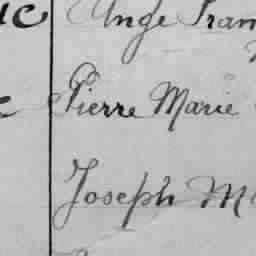 Ange Fran
Pierre Marie
Joseph M